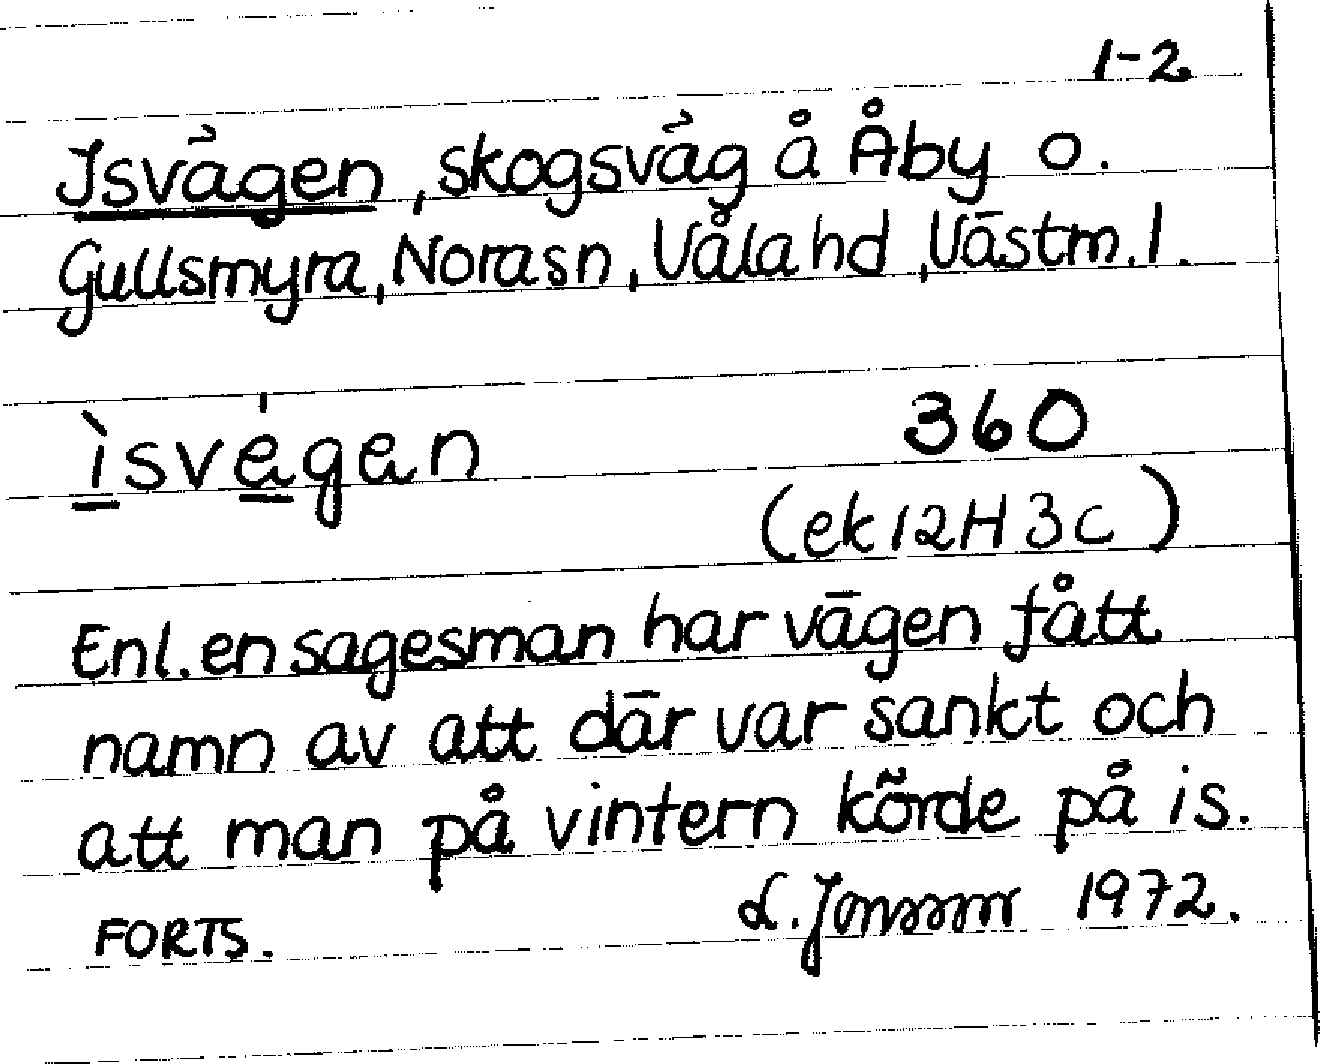 1-2
Isvägen, skogsväg å Åby o.
Gullsmyra, Norasn, Våla hd, Västm. l.
ìsvégan
360
(ek 12H 3c)
Enl. en sagesman har vägen fått
namn av att där var sankt och
att man på vintern körde på is.
FORTS.
L. Jonsson 1972.